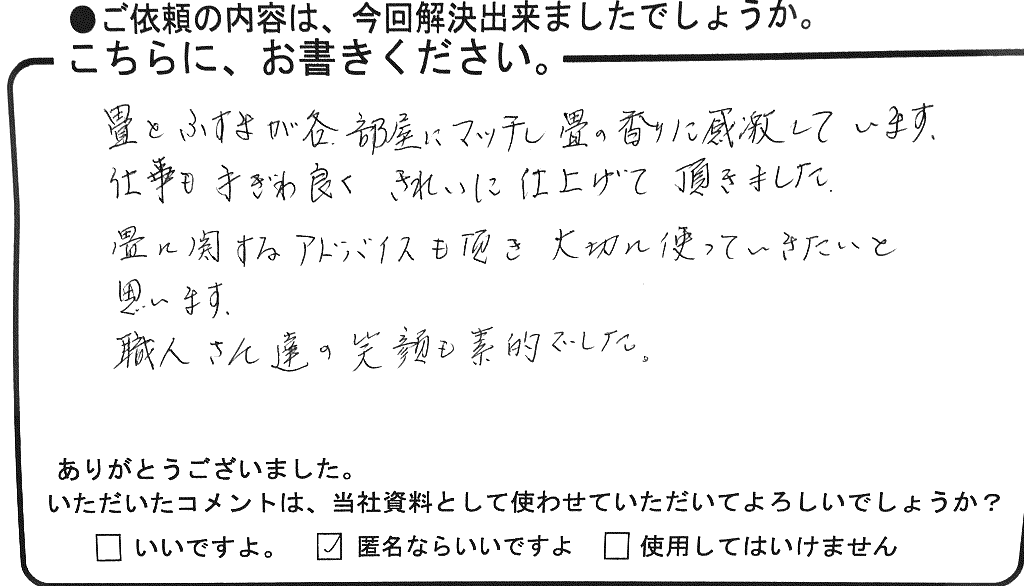 ●ご依頼の内容は、今回解決出来ましたでしょうか。
こちらに、お書きください。
畳とふすまが各部屋にマッチし畳の香りに感激しています。
仕事も手ぎわ良く きれいに仕上げて頂きました。
畳に関するアドバイスも頂き 大切に使っていきたいと
思います。
職人さん達の笑顔も素的でした。
ありがとうございました。
いただいたコメントは、当社資料として使わせていただいてよろしいでしょうか？
□ いいですよ。 ☑ 匿名ならいいですよ □ 使用してはいけません